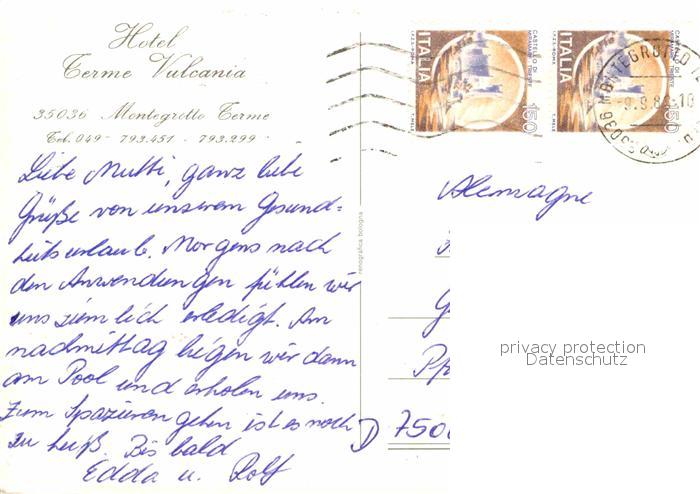 Hotel
Terme Vulcania
35036 Montegrotto Terme
Tel. 049 - 793.451 - 793.299
Liebe Mutti, ganz liebe
Grüße von unserem Gesund=
heitsurlaub. Morgens nach
den Anwendungen fühlen wir
uns ziemlich erledigt. Am
nachmittag liegen wir dann
am Pool und erholen uns.
Zum Spazieren gehen ist es noch
zu heiß. Bis bald
Edda u. Rolf
renografica bologna
ITALIA
CASTELLO DI
MIRAMARE · TRIESTE
150
I.P.Z.S. - ROMA
T. MELE
ITALIA
CASTELLO DI
MIRAMARE · TRIESTE
150
I.P.Z.S. - ROMA
T. MELE
35036 MONTEGROTTO
Alemagne
D 750
privacy protection
Datenschutz